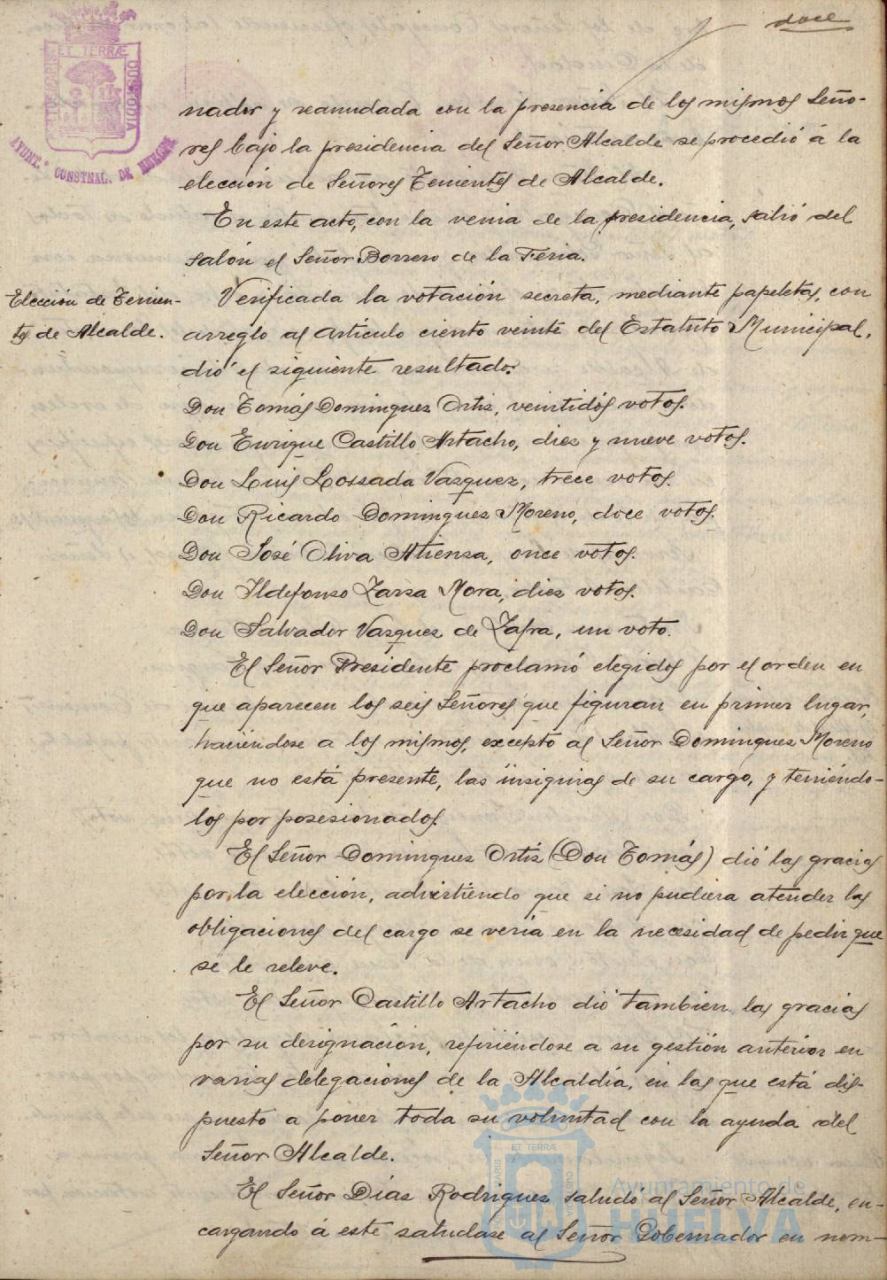 doce
ET TERRÆ
CUSTODIA
AYUNT. CONSTNAL. DE HUELVA
nador y reanudada con la presencia de los mismos Seño-
res bajo la presidencia del Señor Alcalde se procedió á la
elección de Señores Tenientes de Alcalde.
En este acto, con la venia de la presidencia, salió del
salón el Señor Borrero de la Feria.
Elección de Tenien-
tes de Alcalde.
Verificada la votación secreta, mediante papeletas, con
arreglo al artículo ciento veinte del Estatuto Municipal,
dió el siguiente resultado:
Don Tomás Dominguez Ortiz, veintidós votos.
Don Enrique Castillo Artacho, diez y nueve votos.
Don Luis Lossada Vazquez, trece votos.
Don Ricardo Dominguez Moreno, doce votos.
Don José Oliva Atienza, once votos.
Don Ildefonso Zarza Mora, diez votos.
Don Salvador Vazquez de Zafra, un voto.
El Señor Presidente proclamó elegidos por el orden en
que aparecen los seis Señores que figuran en primer lugar,
haciéndose a los mismos, excepto al Señor Dominguez Moreno
que no está presente, las insignias de su cargo, y teniéndo-
los por posesionados.
El Señor Dominguez Ortiz (Don Tomás) dió las gracias
por la elección, advirtiendo que si no pudiera atender las
obligaciones del cargo se vería en la necesidad de pedir que
se le releve.
El Señor Castillo Artacho dió tambien las gracias
por su designación, refiriéndose a su gestión anterior en
varias delegaciones de la Alcaldía, en las que está dis-
puesto a poner toda su voluntad con la ayuda del
Señor Alcalde.
El Señor Díaz Rodriguez saludó al Señor Alcalde, en-
cargando á este saludase al Señor Gobernador en nom-
ET TERRÆ
Ayuntamiento de
HUELVA